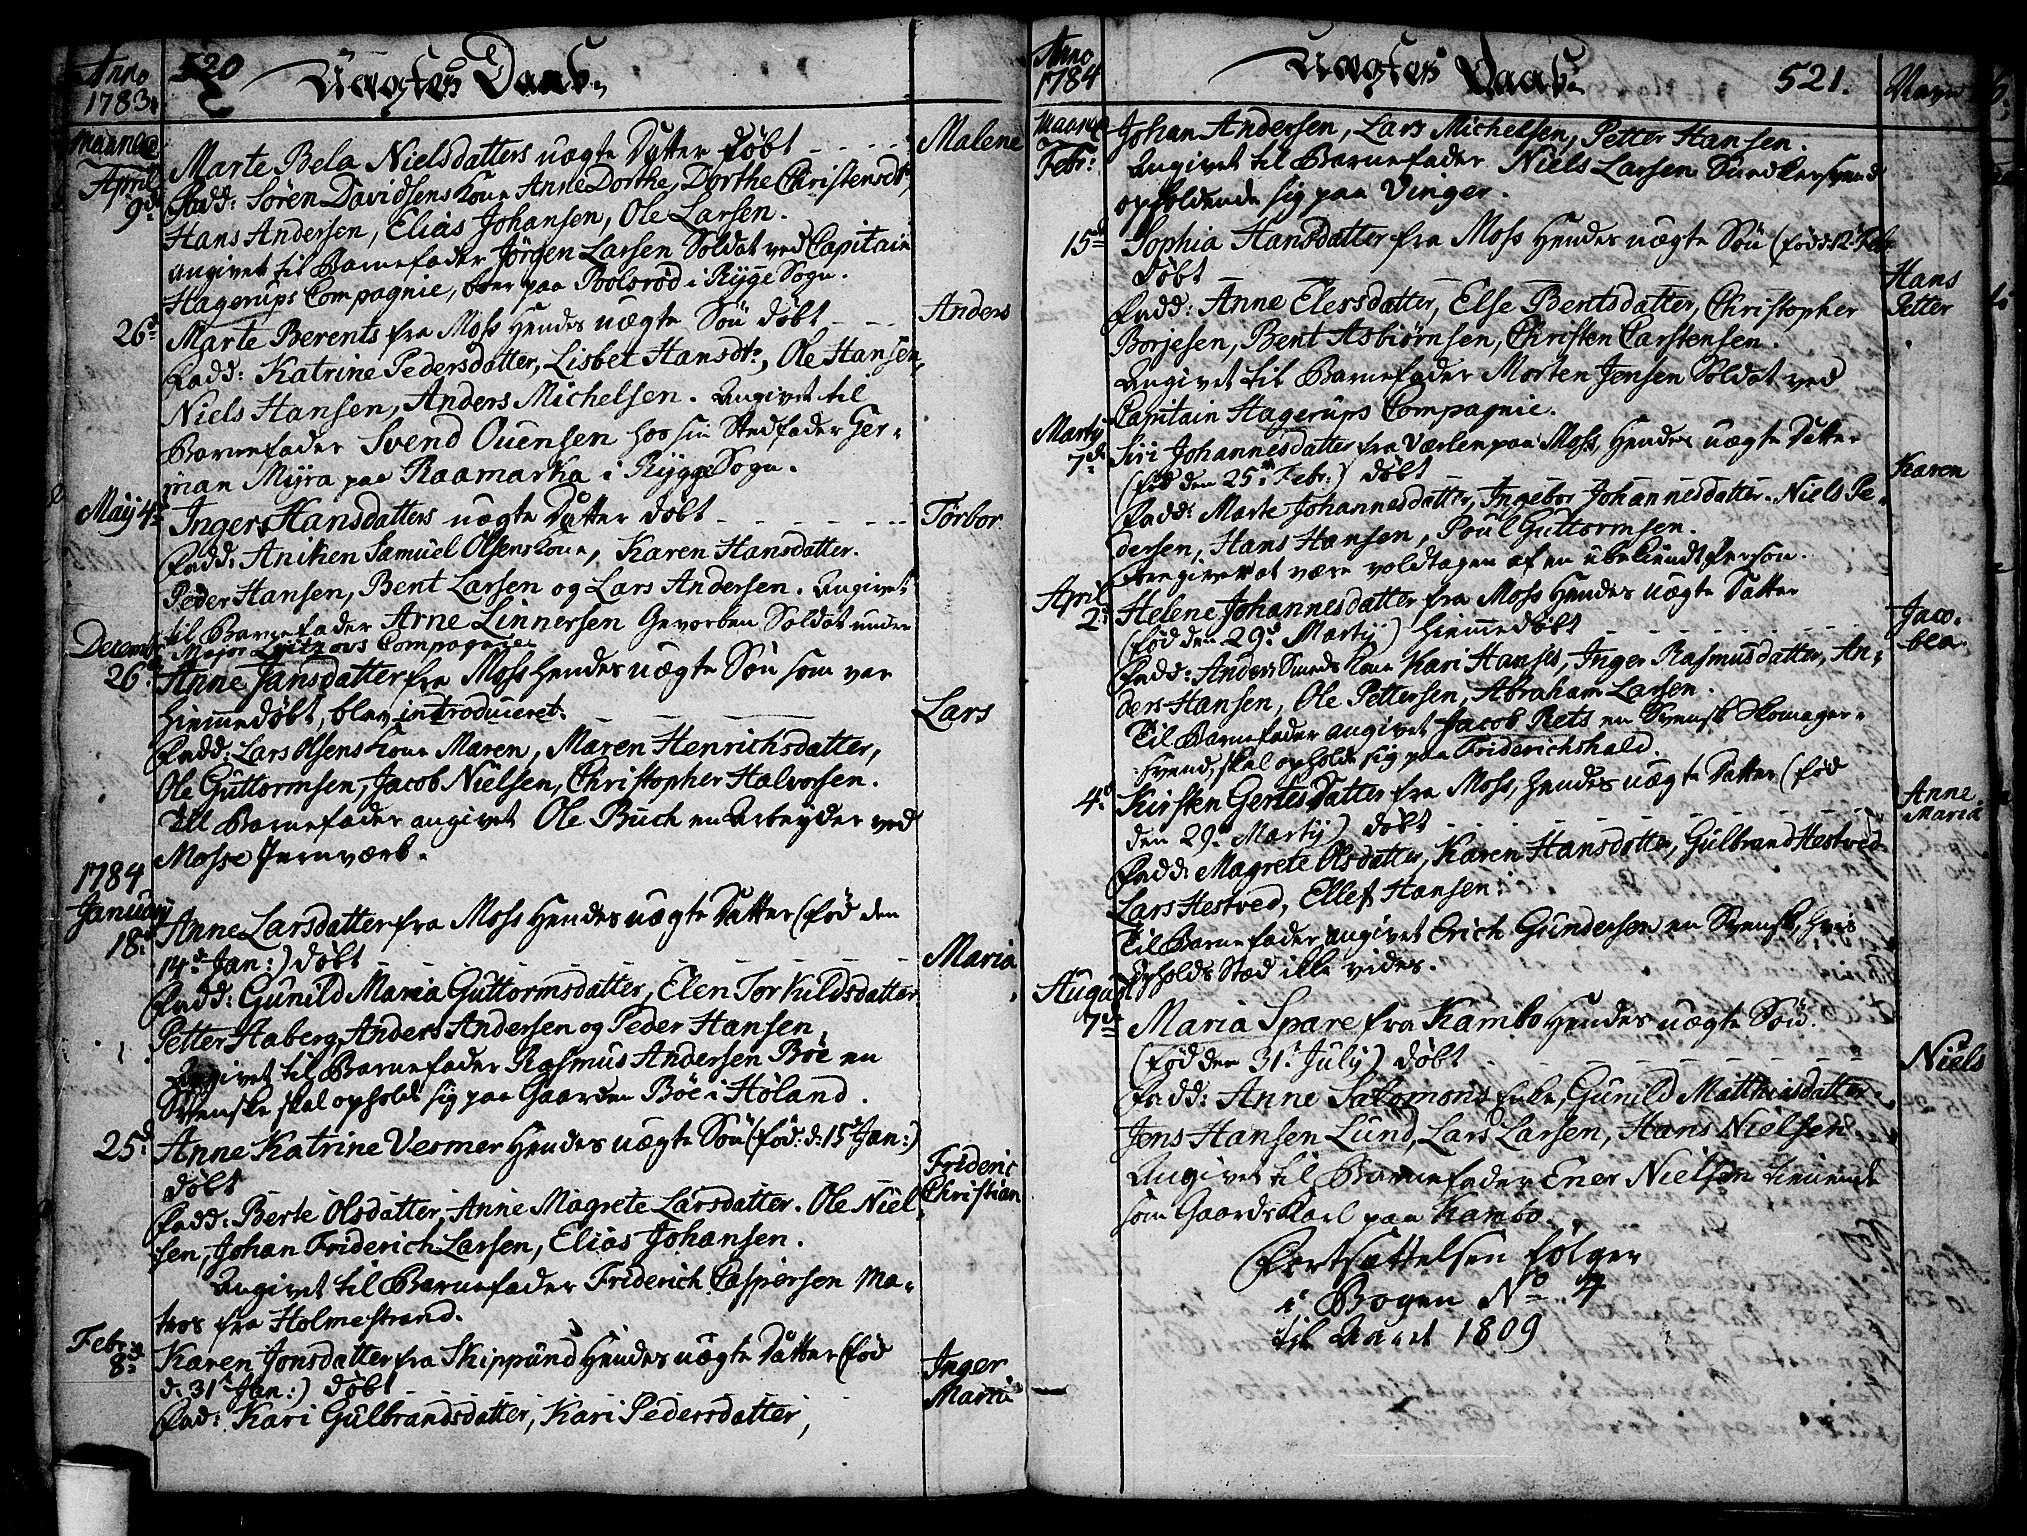 Anno 1783.
520
Uægtes Daab.
Maaned
April 9de
Marte Bela Nielsdatters uægte Datter døbt - - - - Malene
Fadd: Søren Davidsens Kone Anne Dorthe, Dorthe Christensdt
Hans Andersen, Elias Johansen, Ole Larsen.
angivet til Barnefader Jørgen Larsen Soldat ved Capitain
Hagerups Compagnie, boer paa Poolsrød i Rygge Sogn.
26d Marte Berents fra Moss Hendes uægte Søn døbt - - - Anders
Fadd: Katrine Pedersdatter, Lisbet Hansdt:, Ole Hansen,
Niels Hansen, Anders Michelsen. Angivet til
Barnefader Svend Ouensen hos sin Stedfader Ger-
man Myra paa Raamarka i Rygge Sogn.
Maij 4de Inger Hansdatters uægte Datter døbt - - - - - - Torbor
Fadd: Aniken Samuel Olsens Kone, Karen Hansdatter.
Peder Hansen, Bent Larsen og Lars Andersen. Angivet
til Barnefader Arne Linnersen Gevorben Soldat under
Major Lützows Compagnie
Decembr 26d Anne Jansdatter fra Moss Hendes uægte Søn som var
Hiemmedøbt, blev introduceret. - - - - Lars
Fadd: Lars Olsens Kone Maren, Maren Henrichsdatter,
Ole Guttormsen, Jacob Nielsen, Christopher Halvorsen.
Til Barnefader angivet Ole Buch en Arbeyder ved
Mosse Jernværk.
1784
January 18d Anne Larsdatter fra Moss Hendes uægte Datter (fød den
14d Jan:) døbt - - - - - - - - Maria
Fadd: Gunild Maria Guttormsdatter, Elen Torkildsdatter
Petter Haberg, Anders Andersen og Peder Hansen,
Angivet til Barnefader Rasmus Andersen Böe en
Svenske skal opholde sig paa Gaarden Böe i Høland.
25d Anne Katrine Vesmer Hendes uægte Søn (fød: d: 15d Jan:)
døbt - - - - - - - - Frideric Christian
Fadd: Berte Olsdatter, Anne Magrete Larsdatter. Ole Niel-
sen, Johan Friderich Larsen, Elias Johansen.
Angivet til Barnefader Friderich Caspersen Ma-
tros fra Holmestrand.
Febr: 8de Karen Jonsdatter fra Skippund Hendes uægte Datter (fød
d: 31t Jan:) døbt - - - - Inger Maria
Fad: Kari Gulbrandsdatter, Kari Pedersdatter,
Anno 1784
Uægtes Daab.
521.
Navn
Maaned
Febr:
Johan Andersen, Lars Michelsen, Petter Hansen.
Angivet til Barnefader Niels Larsen Snedkersvend
opholdende sig paa Vinger.
15d Sophia Hansdatter fra Moss Hendes uægte Søn (fød: 12 Feb:
døbt - - - - - - - - Hans Petter
Fadd: Anne Elersdatter, Else Bentsdatter, Christopher
Borjesen, Bent Asbiørnsen, Christen Carstensen.
Angivet til Barnefader Morten Jensen Soldat ved
Capitain Hagerups Compagnie.
Martij 7de Siri Johannesdatter fra Værlen paa Moss, Hendes uægte Datter
(fød den 25de Febr:) døbt - - - - Karen
Fadd: Marte Johannesdatter, Ingebor Johannesdatter. Niels Pe-
dersen, Hans Hansen, Poul Guttormsen.
Foregiver at være voldtagen af en ubekiendt Person.
April 2d Helene Johannesdatter fra Moss Hendes uægte Datter
(fød den 29d Martij) hiemmedøbt - - - - Jaco-bea.
Fadd: Anders Smeds Kone Kari Hanses, Inger Rasmusdatter, An-
ders Hansen, Ole Pettersen, Abraham Larsen.
Til Barnefader angivet Jacob Rets en Svensk Skomager-
svend, skal opholde sig paa Friderichshald.
4d Kirsten Gertesdatter fra Moss, Hendes uægte Datter (fød
den 29. Martij) døbt - - - - Anne Maria
Fadd: Magrete Olsdatter, Karen Hansdatter, Gulbrand Hestved
Lars Hestved, Ellef Hansen.
Til Barnefader angivet Erich Gundersen en Svensk, hvis
Opholds Sted ikke vides.
August 7de Maria Spare fra Kambo Hendes uægte Søn.
(fød den 31t July) døbt - - - - Niels
Fadd: Anne Salomons Enke, Gunild Matthiasdatter.
Jens Hansen Lund, Lars Larsen, Hans Nielsen.
Angivet til Barnefader Ener Nielsen tienende
som Gaards Karl paa Kambo.
Fortsættelsen følger
i Bogen No 4
til Aaret 1809